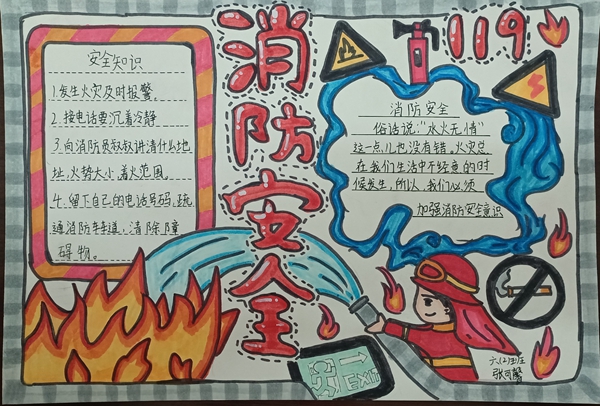 消防安全
119
安全知识
1.发生火灾及时报警。
2.接电话要沉着冷静
3.向消防员叔叔讲清什么地
址,火势大小,着火范围。
4.留下自己的电话号码,疏
通消防车车道,清除障
碍物。
消防安全
俗话说:“水火无情”
这一点儿也没有错,火灾总
在我们生活中不经意的时
候发生,所以,我们必须
加强消防安全意识
EXIT
六(2)班
张可馨